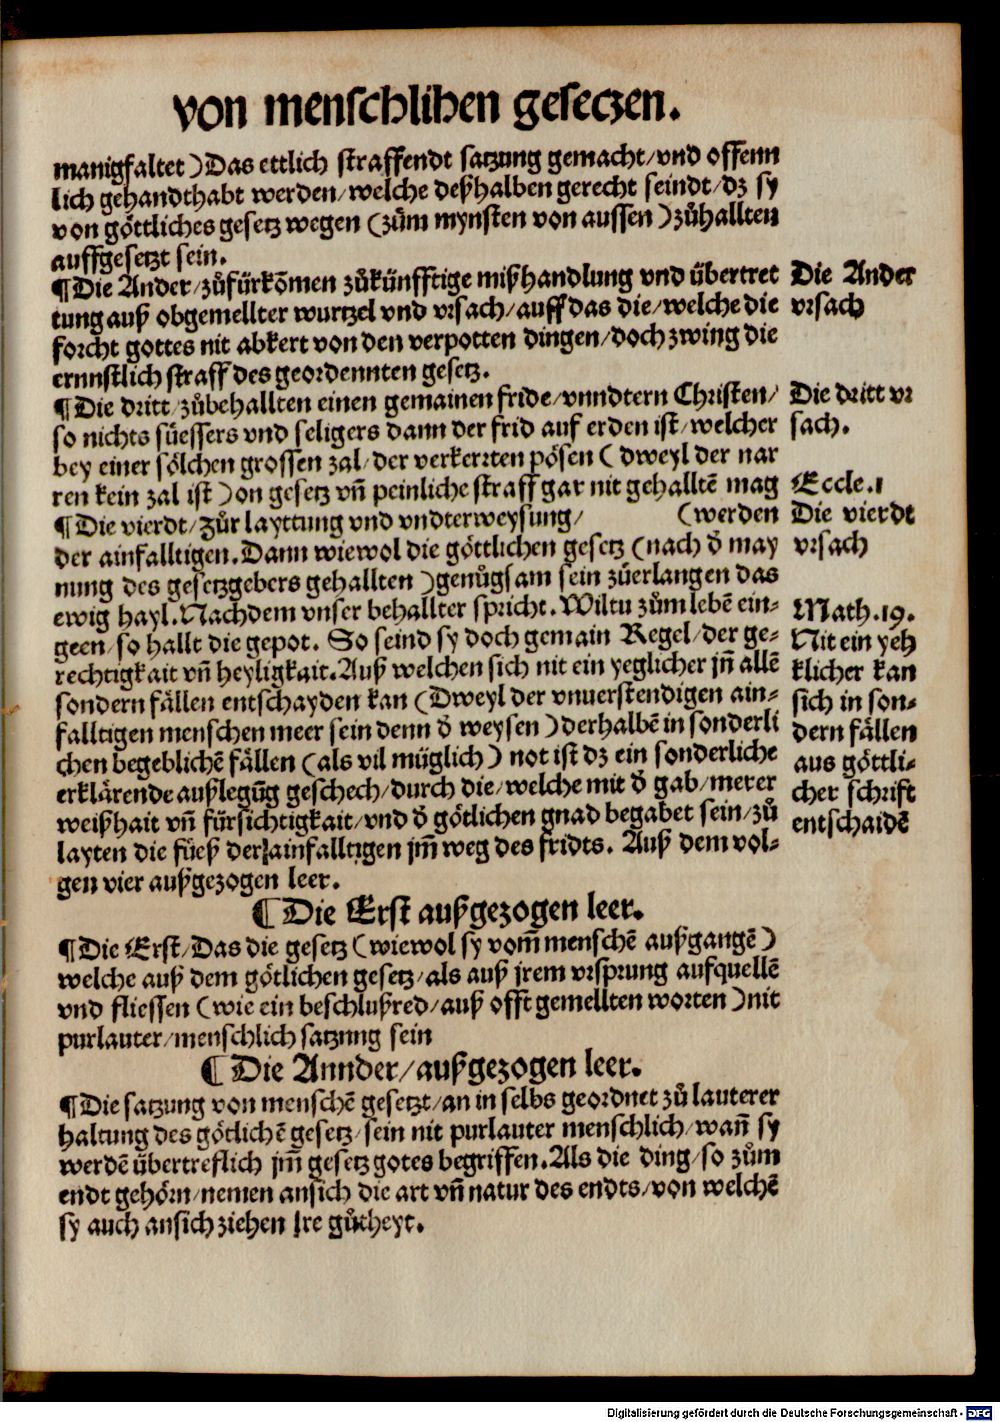 von menschlihen gesetzen.
manigfaltet) Das ettlich straffendt satzung gemacht/vnd offenn
lich gehandthabt werden/welche deßhalben gerecht seindt/dz sy
von göttliches gesetz wegen (zům mynsten von aussen) zůhallten
auffgesetzt sein.
¶Die Ander/zůfürkõmen zůkünfftige mißhandlung vnd übertret
tung auß obgemellter wurtzel vnd vrsach/auff das die/welche die
forcht gottes nit abkert von den verpotten dingen/doch zwing die
ernnstlich straff des geordennten gesetz.
Die Ander
vrsach
¶Die dritt/zůbehallten einen gemainen fride/vnndtern Christen/
so nichts süessers vnd seligers dann der frid auf erden ist/welcher
bey einer sölchen grossen zal/der verkerrten pösen (dweyl der nar
ren kein zal ist) on gesetz vñ peinliche straff gar nit gehalltẽ mag
Die dritt vr
sach.
Eccle.1
¶Die vierdt/zůr layttung vnd vndterweysung/ (werden
der ainfalltigen. Dann wiewol die göttlichen gesetz (nach d̃ may
nung des gesetzgebers gehallten) genůgsam sein zůerlangen das
ewig hayl. Nachdem vnser behallter spricht. Wiltu zům lebẽ ein-
geen/so hallt die gepot. So seind sy doch gemain Regel/der ge-
rechtigkait vñ heyligkait. Auß welchen sich nit ein yeglicher jñ allẽ
sondern fällen entschayden kan (Dweyl der vnuerstendigen ain-
falltigen menschen meer sein denn d̃ weysen) derhalbẽ in sonderli
chen begeblichẽ fällen (als vil müglich) not ist dz ein sonderliche
erklärende außlegũg geschech/durch die/welche mit d̃ gab/merer
weißhait vñ fürsichtigkait/vnd d̃ götlichen gnad begabet sein/zů
layten die füeß der ainfalltigen jm̃ weg des fridts. Auß dem vol-
gen vier außgezogen leer.
Die vierdt
vrsach
Math.19.
Nit ein yeh
klicher kan
sich in son-
dern fällen
aus göttli-
cher schrift
entschaidẽ
¶Die Erst außgezogen leer.
¶Die Erst/Das die gesetz (wiewol sy vom̃ menschẽ außgangẽ)
welche auß dem götlichen gesetz/als auß jrem vrsprung aufquellẽ
vnd fliessen (wie ein beschlußred/auß offt gemellten worten) nit
purlauter/menschlich satzung sein
¶Die Annder/außgezogen leer.
¶Die satzung von menschẽ gesetzt/an in selbs geordnet zů lauterer
haltung des götlichẽ gesetz/sein nit purlauter menschlich/wañ sy
werdẽ übertreflich jm̃ gesetz gotes begriffen. Als die ding/so zům
endt gehörn/nemen ansich die art vñ natur des endts/von welchẽ
sy auch ansich ziehen jre gůtheyt.
Digitalisierung gefördert durch die Deutsche Forschungsgemeinschaft - DFG